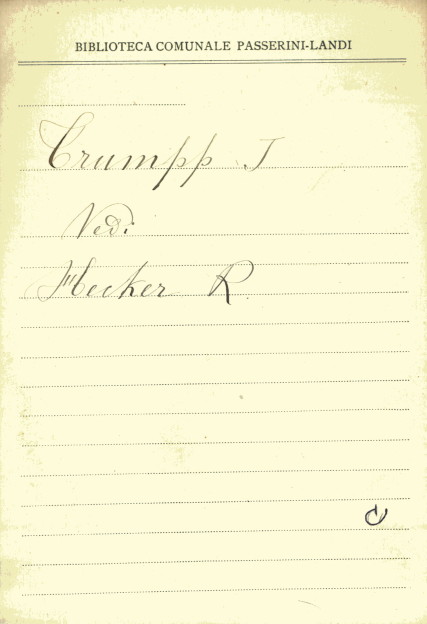 BIBLIOTECA COMUNALE PASSERINI-LANDI
Crumpp J
Vedi
Hecker R.